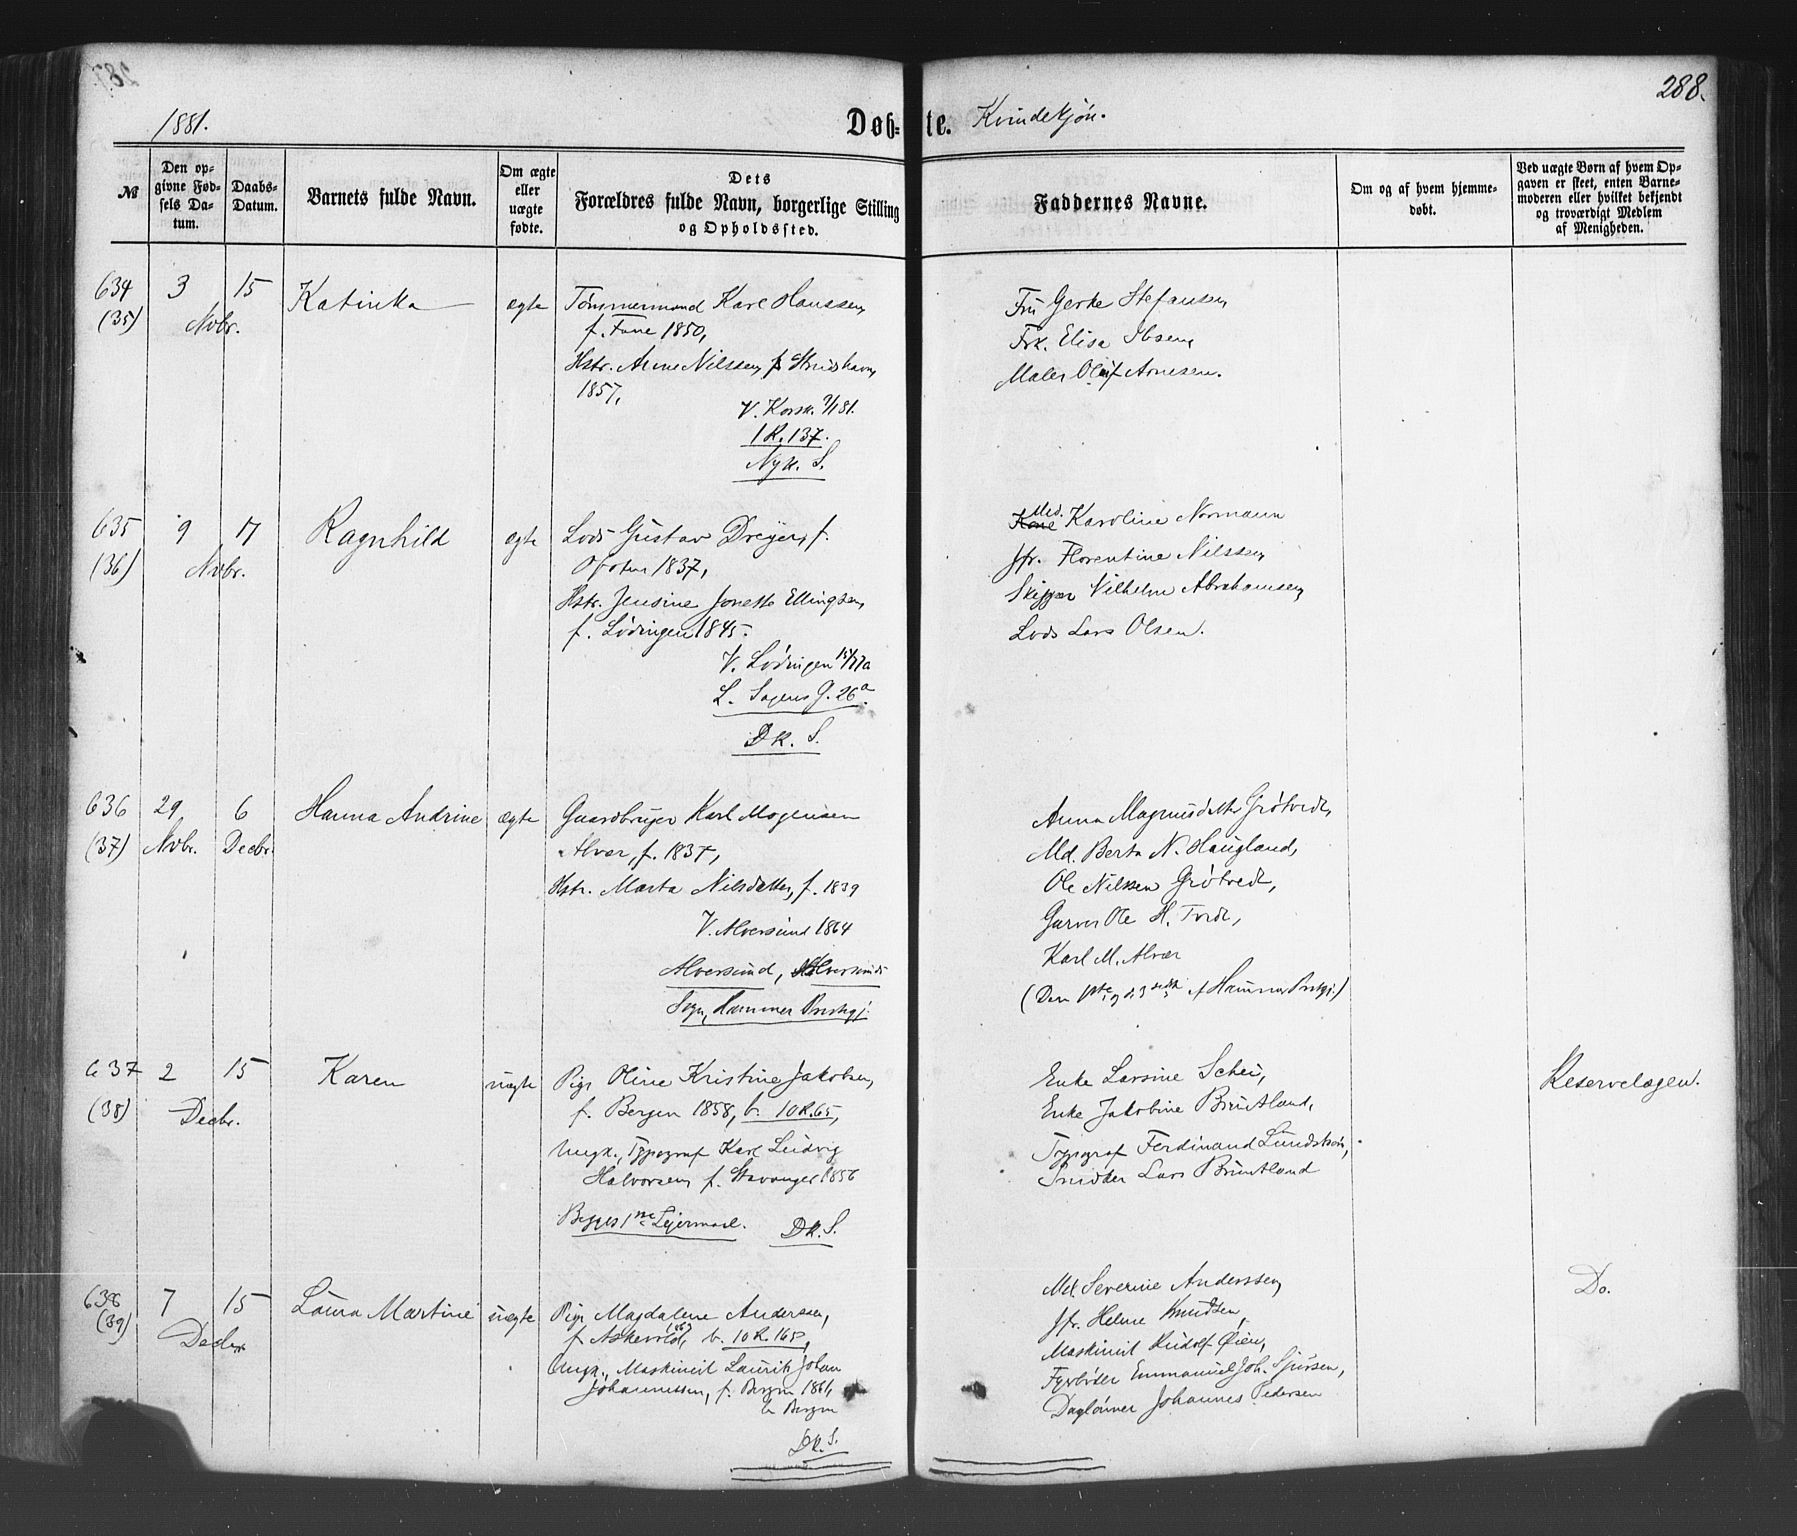 288.
1881.
Døb=te. Kvindekjøn.
№
Den opgivne Fødsels Datum.
Daabs-Datum.
Barnets fulde Navn.
Om ægte eller uægte fødte.
Dets
Forældres fulde Navn, borgerlige Stilling
og Opholdssted.
Faddernes Navne.
Om og af hvem hjemmedøbt.
Ved uægte Børn af hvem Opgaven er skeet, enten Barnemoderen eller hvilket bekjendt og troværdigt Medlem af Menigheden.
634 3 15 Katinka ægte Tømmermand Karl Hanssen,
(35) Novbr.
f. Fane 1850,
Hstr. Anne Nilssen, f.
1857,
V. Korsk. 81.
1 R. 137.
Nyk. S.
Fru Gerke Stefansen,
Frk. Elisa Ibsen,
Maler Oluf Arnesen.
635 9 17 Ragnhild ægte Lods Gustav Dreyer, f.
(36) Novbr.
Ofoten 1837,
Hstr. Jensine Jonette Ellingsen,
f. Lødingen 1845.
V. Lødingen 15/
L. Sagens G. 26a.
Dk. S.
Md. Karoline Normann
Jfr. Florentine Nilssen,
Skipper Vilhelm Abrahamsen,
Lods Lars Olsen.
636 29 6 Hanna Andrine ægte Gaardbruger Karl Mogensen
(37) Novbr. Decbr.
Alver, f. 1837,
Hstr. Marta Nilsdatter, f. 1839
V. Alversund 1864
Alversund, Alversunds
Sogn, Hammer Prestgj.
Anna Magnusdatter Grøtvedt,
Md. Berta N. Haugland,
Ole Nilssen Grøtvedt,
Garver Ole H. Tvedt,
Karl M. Alver
(Den 1ste og d. 3die af Hammer Prestgj.)
637 2 15 Karen uægte Pige Oline Kristine Jakobsen,
(38) Decbr.
f. Bergen 1858, b. 10 R. 65,
Ungk., Typograf Karl Ludvig
Halvorsen, f. Stavanger 1856
Begges 1ne Lejermaal. Dk. S.
Enke Larsine Schei,
Enke Jakobine Bruntland,
Typograf Ferdinand Lundstrøm,
Snidker Lars Bruntland
Reservelægen.
638 7 15 Laura Martine uægte Pige Magdalene Anderssen,
(39) Decbr.
f. Askevold, b. 10 R. 165,
Ungk., Maskinist Laurits Johan
Johannessen, f. Bergen 1861,
b. Bergen
Dk. S.
Md. Severine Anderssen,
Jfr. Helene Knudsen,
Maskinist Rudolf Øien,
Fyrbøder Emmanuel Joh. Sjursen,
Daglønner Johannes Pedersen
Do.